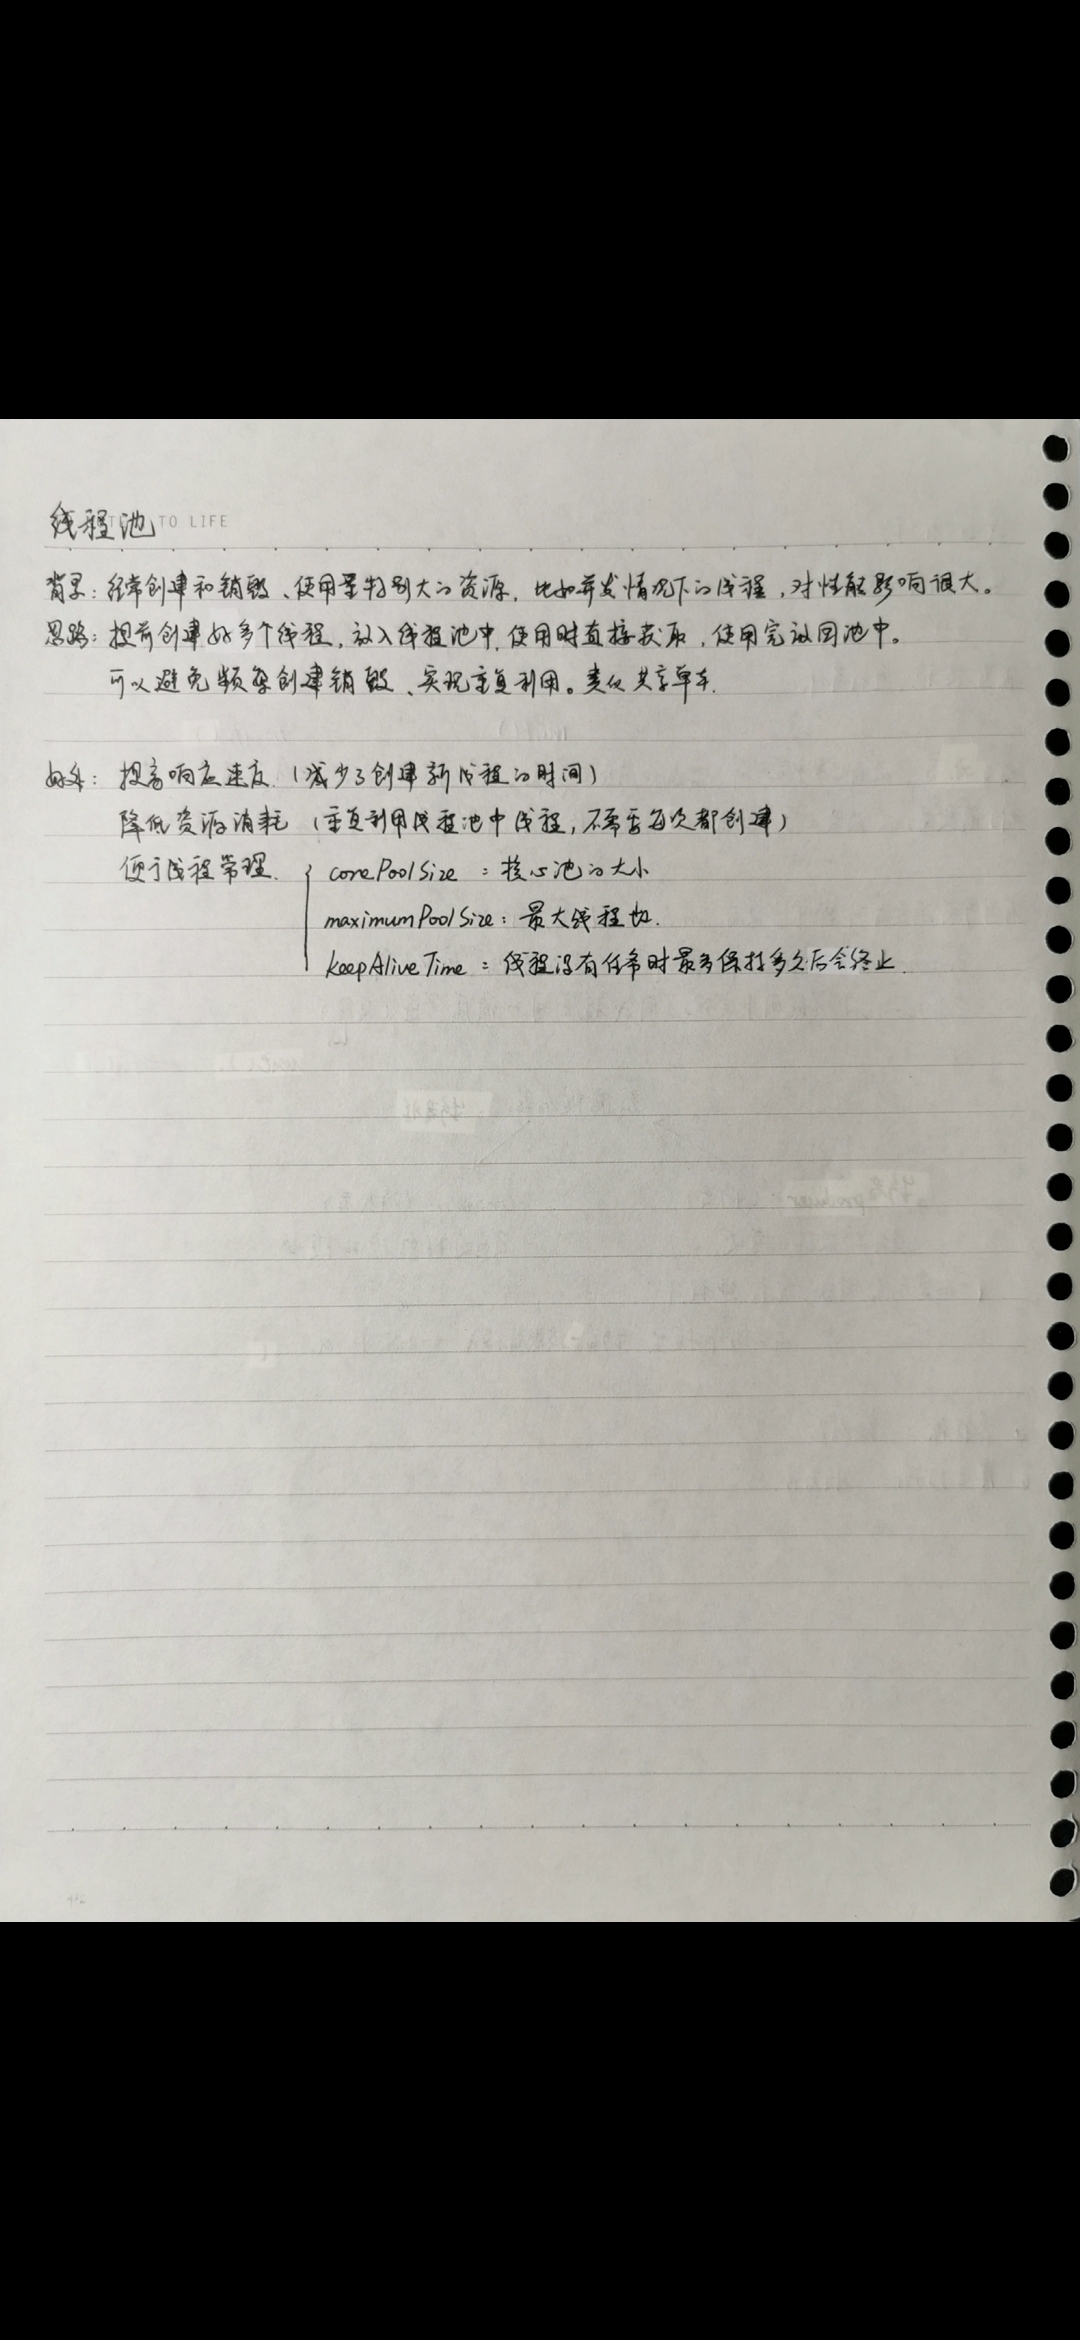 线程池 TO LIFE
背景：经常创建和销毁、使用量特别大的资源，比如并发情况下的线程，对性能影响很大。
思路：提前创建好多个线程，放入线程池中，使用时直接获取，使用完放回池中。
可以避免频繁创建销毁、实现重复利用。类似共享单车.
好处：提高响应速度.（减少了创建新线程的时间）
降低资源消耗（重复利用线程池中线程，不需要每次都创建）
便于线程管理.
corePoolSize：核心池的大小
maximumPoolSize：最大线程数.
keepAliveTime：线程没有任务时最多保持多久后会终止.